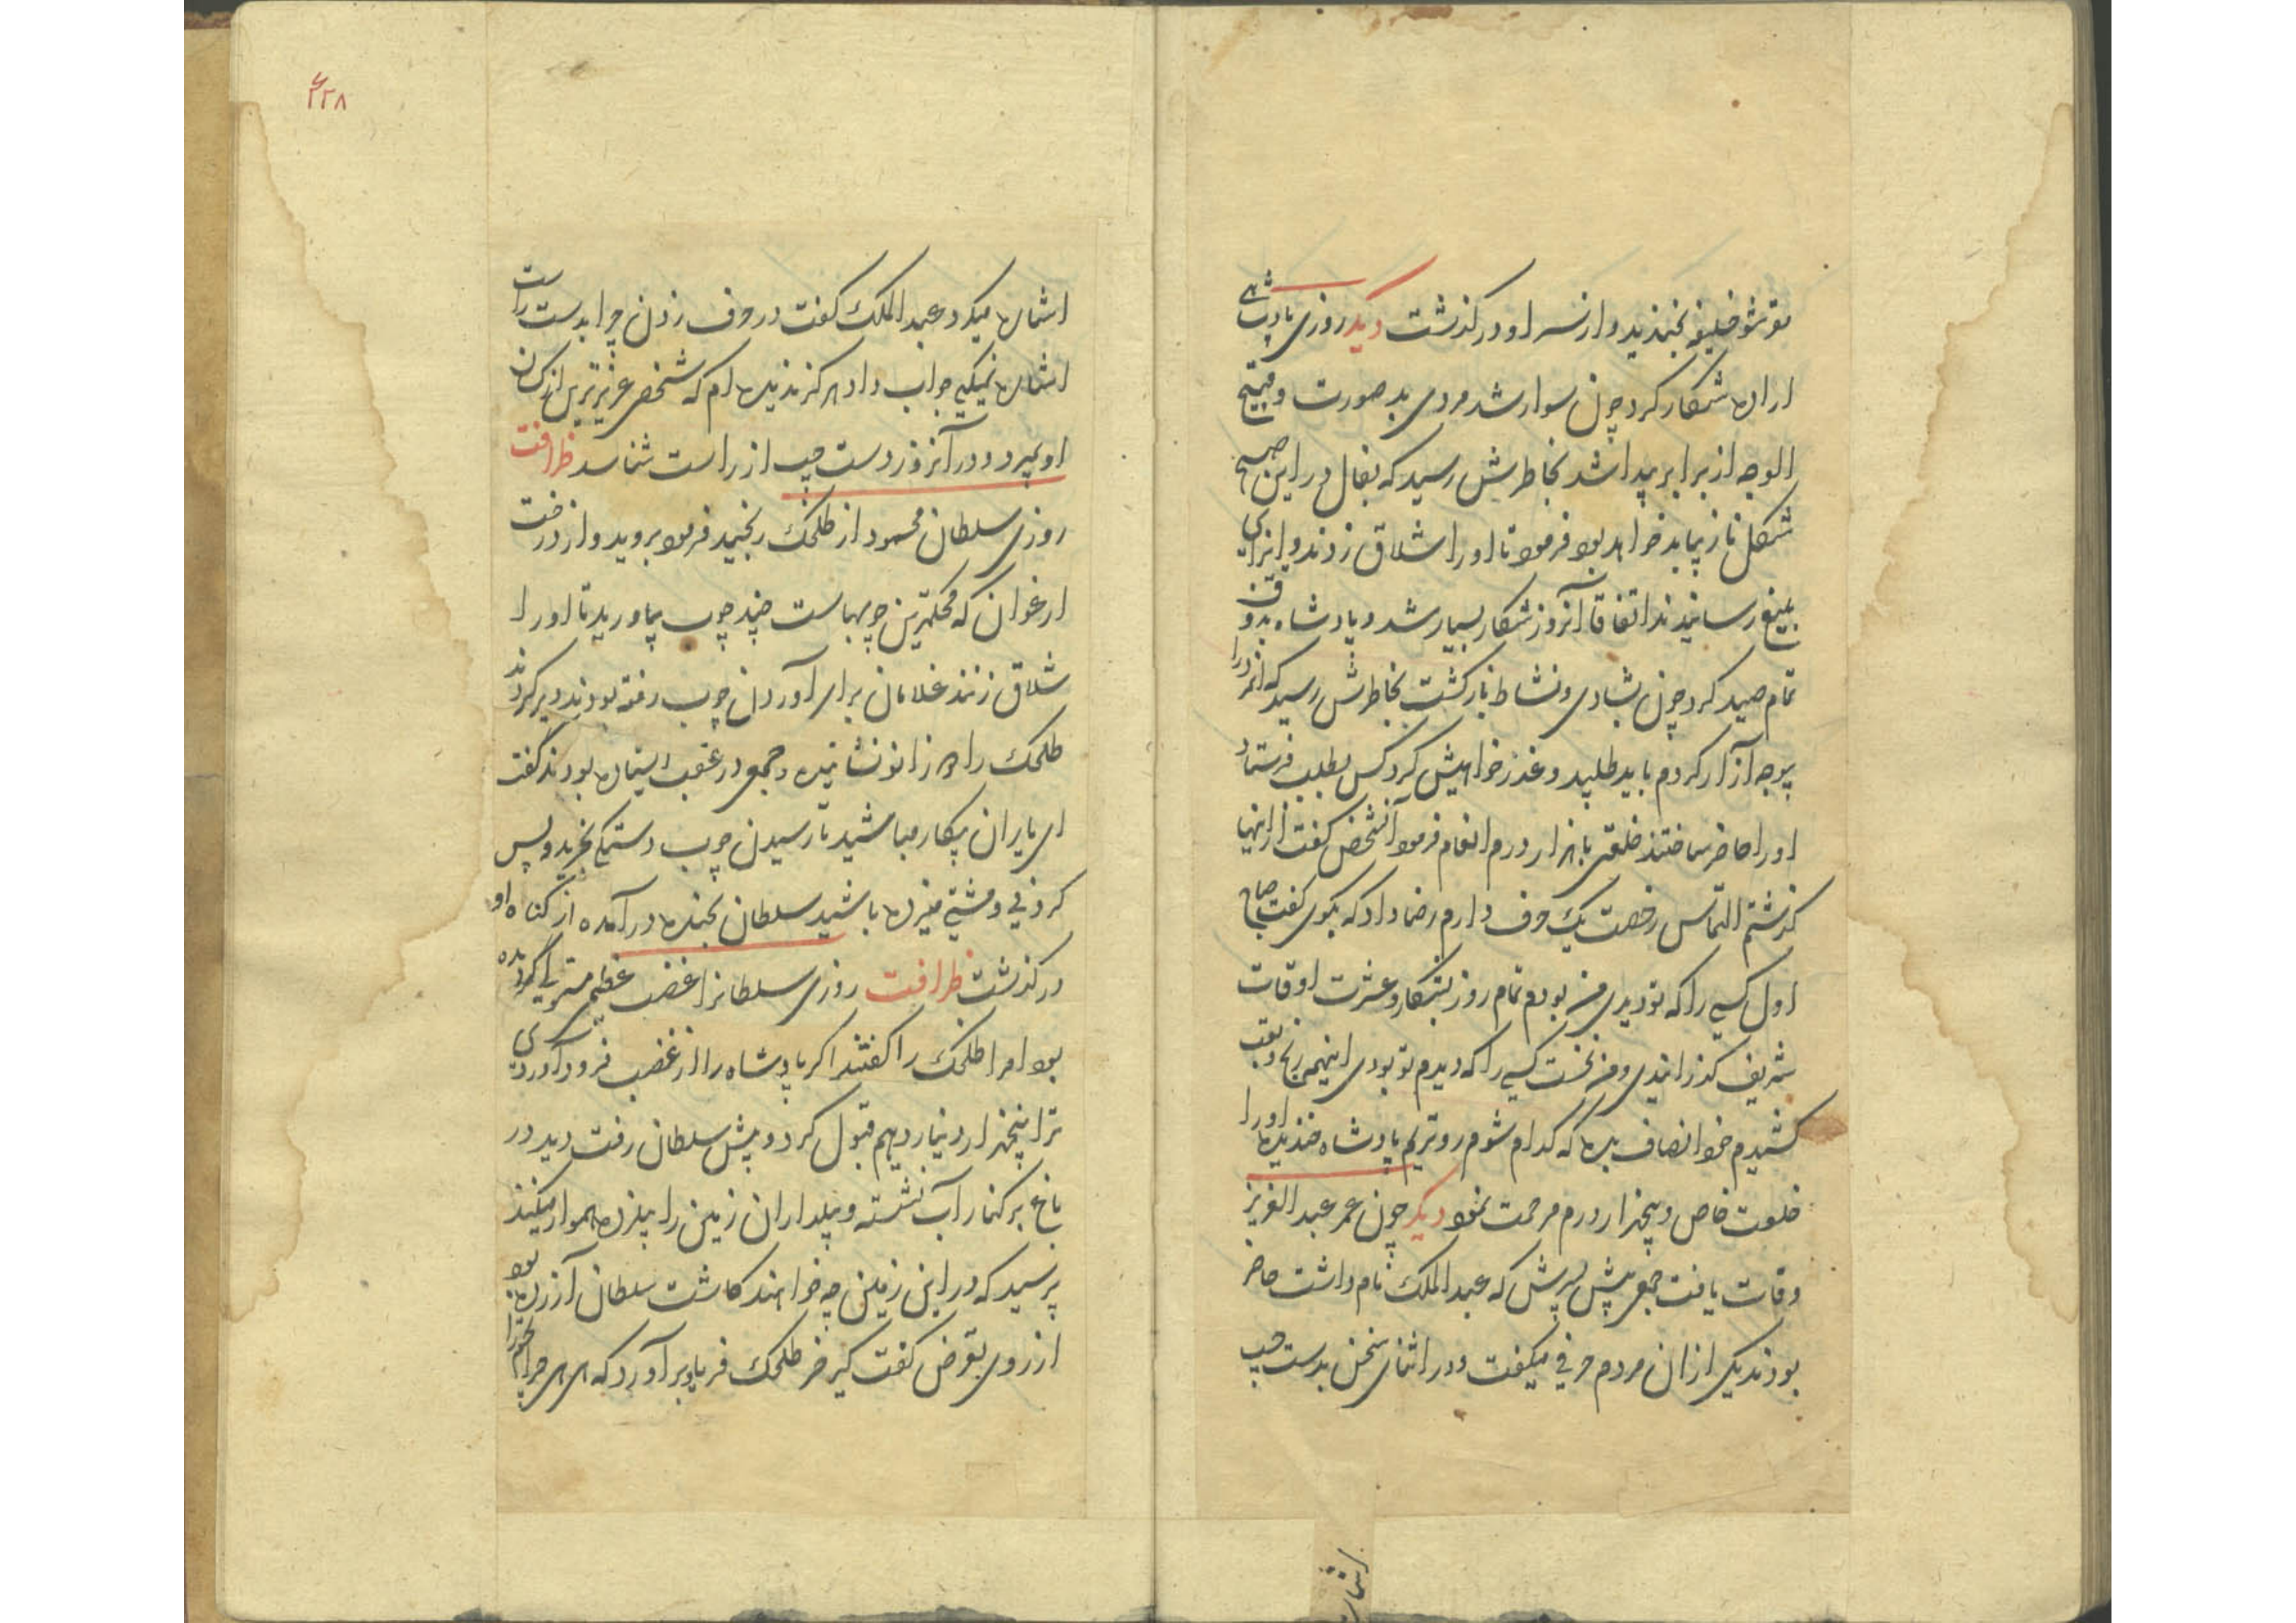 تو شو خلیفه بخندید و از سر او درگذشت دیگر روزی پادشاهی
ارادهٔ شکار کرد چون سوار شد مردی بد صورت و قبیح
الوجه از برابر پیدا شد بخاطرش رسید که بفال در این صبح
شکل ناز پیاید خواهد بود فرمود تا او را شلاق زدند و ایزای
بلیغ رسانیدند اتفاقا آنروز شکار بسیار شد و پادشاه بذوق
تمام صید کرد چون بشادی و نشاط بازگشت بخاطرش رسید که آنمرد را
بیوجه آزار کردم باید طلبید و عذر خواهیش کرد کس بطلب فرستاد
او را حاضر ساختند خلعتی با هزار درم انعام فرمود آنشخص گفت از اینها
گذشتم التماس رخصت یک حرف دارم رضا داد که بگوی گفت صباح
اول کسی را که تو دیدی من بودم تمام روز بشکار و عشرت اوقات
شریف گذرانیدی و من نخست کسی را که دیدم تو بودی اینهمه رنج و تعب
کشیدم خود انصاف بده که کدام شوم روتریم پادشاه خندیده او را
خلعت خاص و پنجهزار درم مرحمت نمود دیگر چون عمر عبد العزیز
وفات یافت جمعی پیش پسرش که عبد الملک نام داشت حاضر
بودند یکی از ان مردم حرفی میگفت و در اثنای سخن بدست چپ
اشاره
۲۲۸
اشاره میکرد عبد الملک گفت در حرف زدن چرا بدست راست
اشاره نمیکنی جواب داد هرگز ندیده‌ام که شخصی عزیزترین از کسان
او بمیرد و در آنروز دست چپ از راست شناسد ظرافت
روزی سلطان محمود از طلحک رنجید فرمود بروید و از درخت
ارغوان که محکمترین چوبهاست چند چوب بیاورید تا او را
شلاق زنند غلامان برای آوردن چوب رفته بودند دیر کردند
طلحک را دو زانو نشانیده و جمعی در عقب ایستاده بودند گفت
ای یاران بیکار مباشید تا رسیدن چوب دستکی بخرید و پس
گردنی و مشتی میزده باشید سلطان بخنده درآمده از گناه او
درگذشت ظرافت روزی سلطانرا غضب عظیم مستولی گردیده
بود امرا طلحک را گفتند اگر پادشاه را از غضب فرود آوردی
ترا پنجهزار دینار دهیم قبول کرد و پیش سلطان رفت دید در
باغ بر کنار آب نشسته و بیلداران زمین را بیلزده هموار میکنند
پرسید که در این زمین چه خواهند کاشت سلطان آزرده بود
از روی تعرض گفت کیر خر طلحک فریاد برآورد که ای